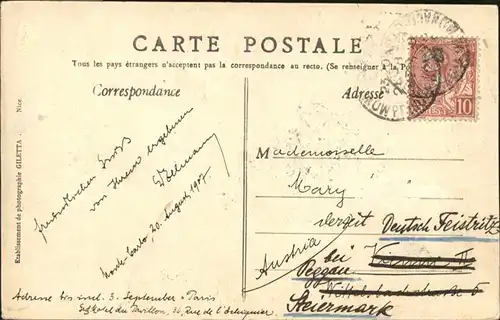 CARTE POSTALE
Tous les pays étrangers n'acceptent pas la correspondance au recto. (Se renseigner à la
Correspondance
Adresse
10
Etablissement de photographie GILETTA. Nice
freundlichen Gruß
von Ihrem ergebenen
Monte Carlo, 20. August, 1907.
Mademoiselle
Mary
derzeit Deutsch Feistritz
bei
Peggau
Steiermark
Austria
Vienne II
Adresse bis incl. 3. September: Paris
Hotel du Pavillon, 36, Rue de l'Echiquier